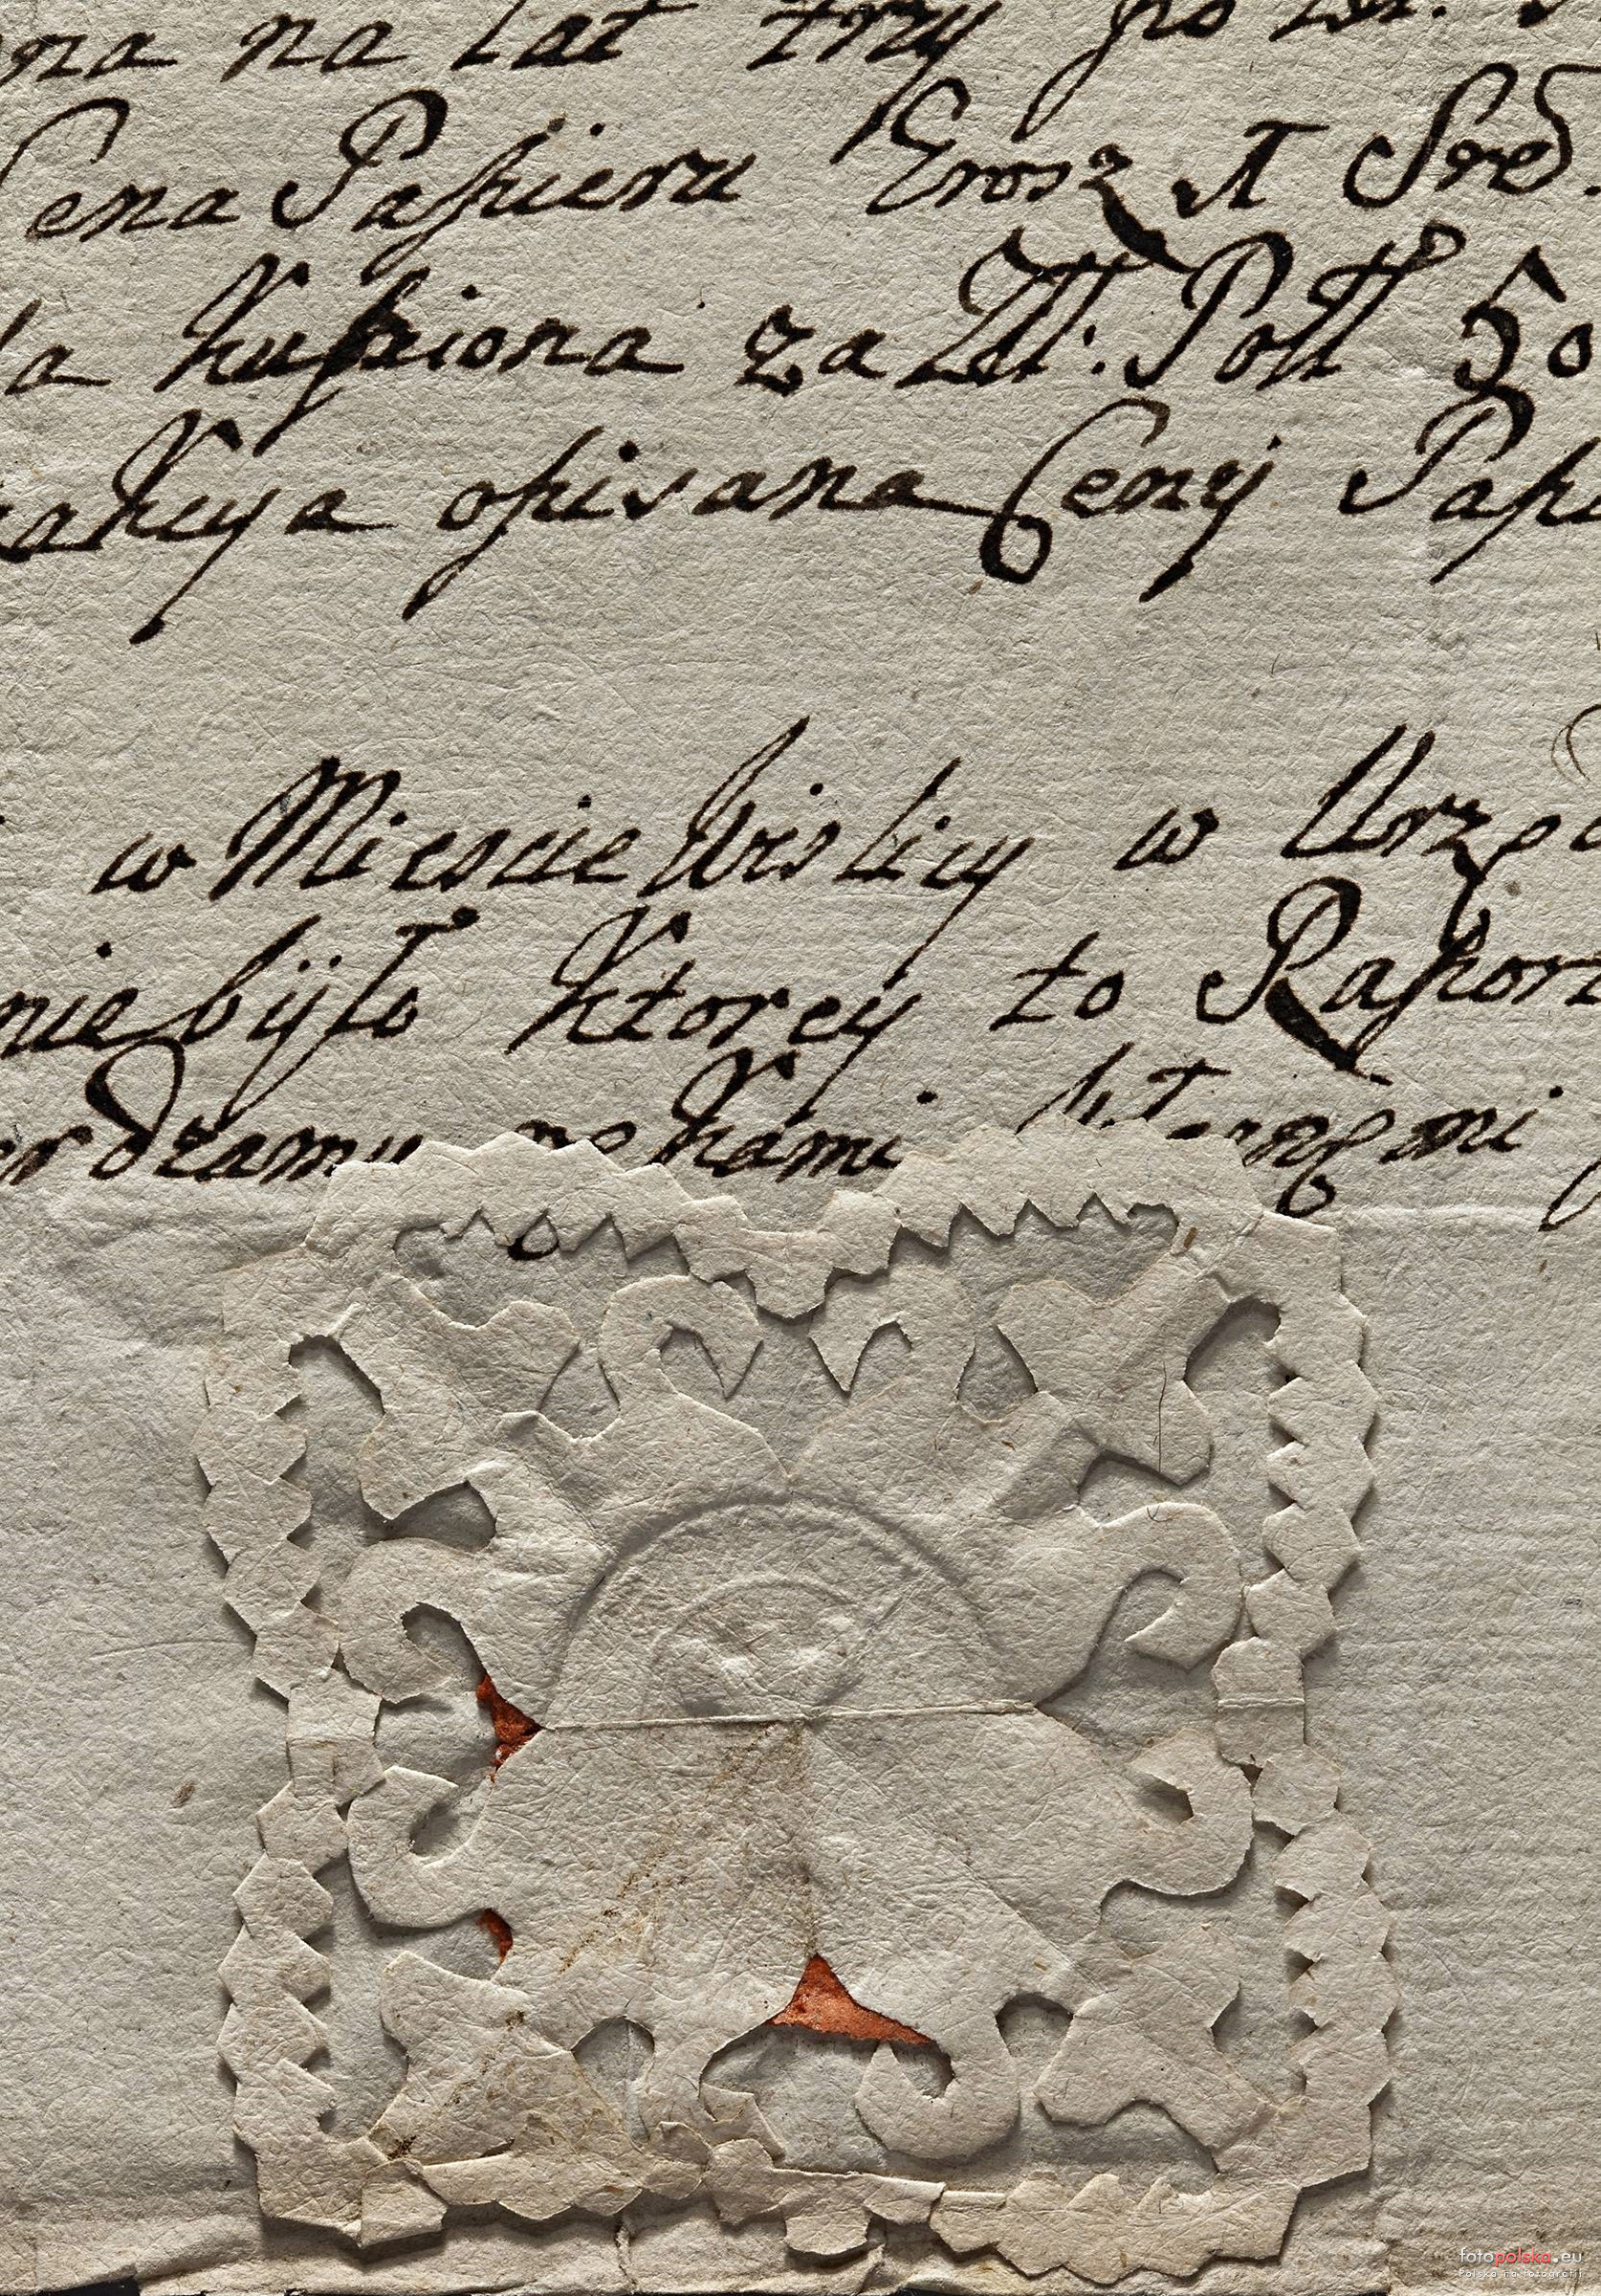 na na Lat trzy po
Cena Papieru Grosz 1 Sreb.
la Kupiona za Złł: Poll 50
akcya opisana Ceny Papi
w Miescie Wislicy w Urzęd
nie było Ktorey to Raport
erdzamy rękami
fotopolska.eu
Polska na fotografii